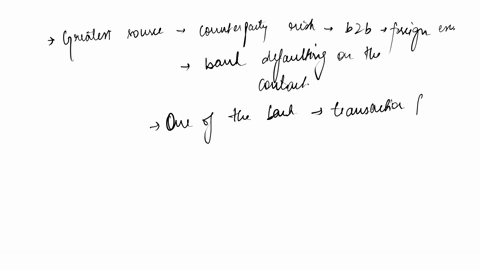 → Greatest source → counterparty risk → b2b → foreign
→ bank defaulting on the
contract.
→ One of the bank → transaction